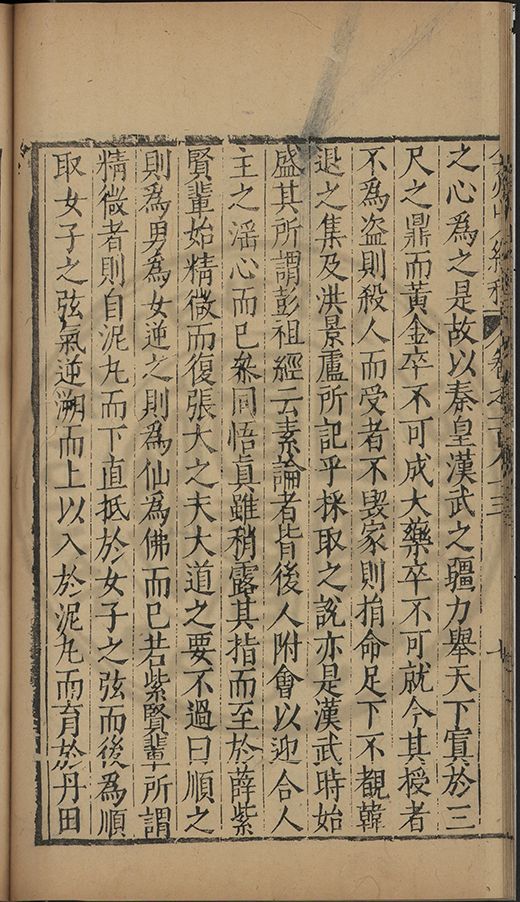 弇州山人續稿 卷之一百八十三
之心為之是故以秦皇漢武之疆力舉天下寘於三
尺之鼎而黃金卒不可成大藥卒不可就今其授者
不為盜則殺人而受者不毀家則捐命足下不觀韓
退之集及洪景盧所記乎採取之說亦是漢武時始
盛其所謂彭祖經云素論者皆後人附會以迎合人
主之滛心而已叅同悟真雖稍露其指而至於薛紫
賢輩始精微而復張大之夫大道之要不過曰順之
則為男為女逆之則為仙為佛而已若紫賢輩所謂
精微者則自泥丸而下直抵於女子之弦而後為順
取女子之弦氣逆溯而上以入於泥丸而育於丹田